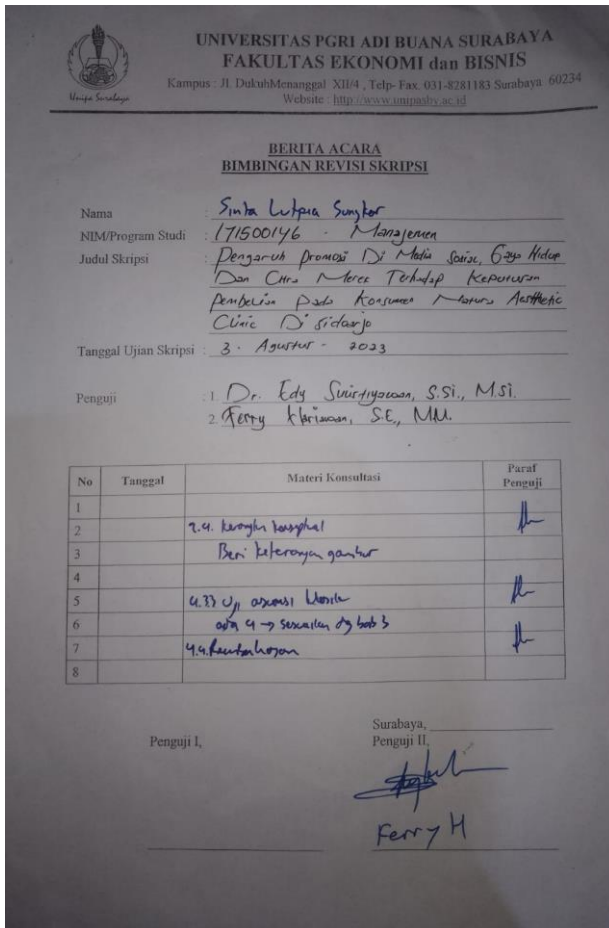 UNIVERSITAS PGRI ADI BUANA SURABAYA
FAKULTAS EKONOMI dan BISNIS
Kampus : Jl. DukuhMenanggal XII/4 , Telp- Fax. 031-8281183 Surabaya 60234
Website : http://www.unipasby.ac.id
Unipa Surabaya
BERITA ACARA
BIMBINGAN REVISI SKRIPSI
Nama : Sinta Lutpia
NIM/Program Studi : 171500146 - Manajemen
Judul Skripsi : Pengaruh Promosi Di Media Sosial, Gaya Hidup
Dan Citra Merek Terhadap Keputusan
Pembelian Pada Konsumen Aesthetic
Clinic Di Sidoarjo
Tanggal Ujian Skripsi : 3 - Agustus - 2023
Penguji : 1. Dr. Edy S.Si., M.Si.
2. Ferry Hariawan, S.E., MM.
No Tanggal Materi Konsultasi Paraf Penguji
1
2 2.4. kerangka konseptual
3 Beri keterangan gambar
4
5 4.33 Uji asumsi klasik
6 ada 4 → sesuaikan dg bab 3
7 4.4. Pembahasan
8
Surabaya,
Penguji I, Penguji II,
Ferry H